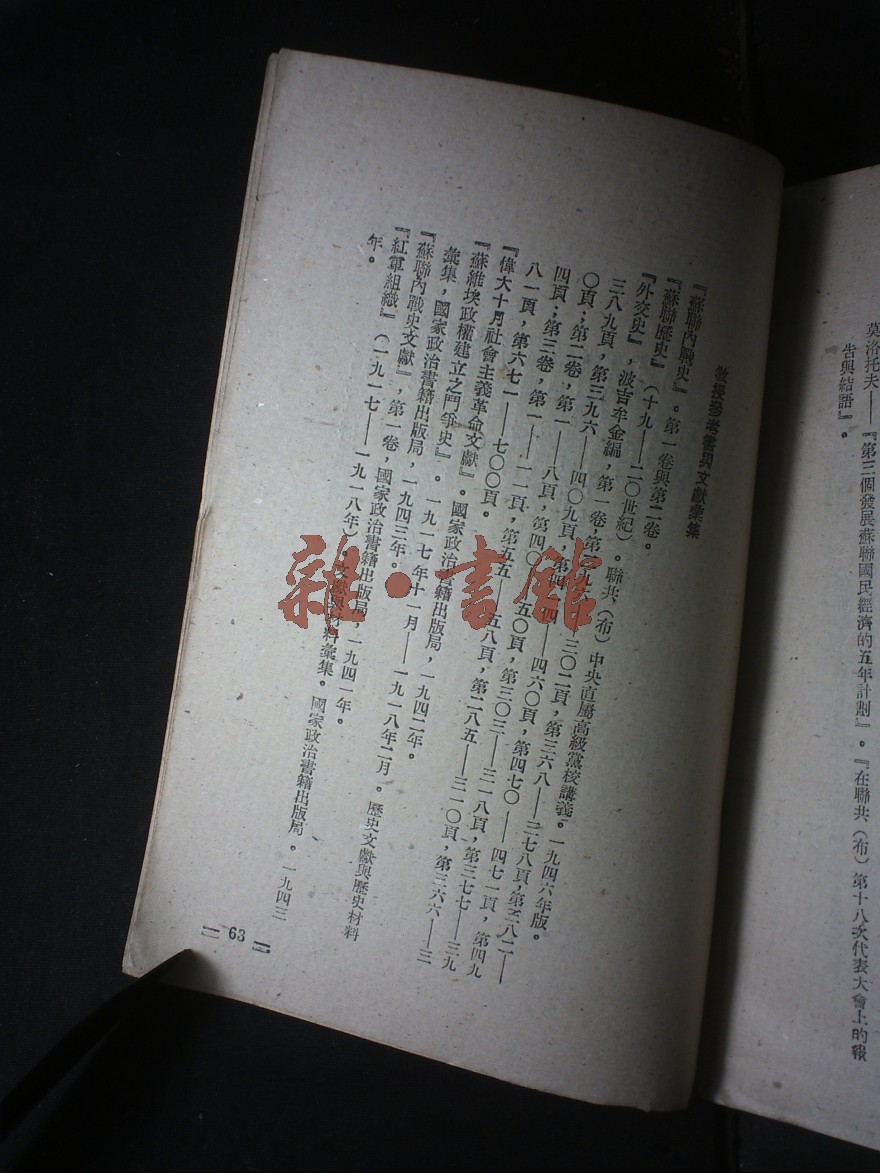 莫洛托夫——『第三個發展蘇聯國民經濟的五年計劃』。『在聯共(布)第十八次代表大會上的報
告與結語』。
教授參考書與文獻彙集
『蘇聯內戰史』。第一卷與第二卷。
『蘇聯歷史』(十九——二〇世紀)。聯共(布)中央直屬高級黨校講義。一九四六年版。
『外交史』,波吉牟金編,第一卷,第二九六——三〇二頁,第三六八——三七八頁,第三八二——
三八九頁,第三九六——四〇九頁,第四四——四六〇頁,第四七〇——四七一頁,第四九
〇頁;第二卷,第一——八頁,第四〇——五〇頁,第三〇三——三一八頁,第三七七——三九
四頁;第三卷,第一——一一頁,第五五——五八頁,第二八五——三一〇頁,第三六六——三
八一頁,第六七一——七〇〇頁。
『偉大十月社會主義革命文獻』。國家政治書籍出版局,一九四二年。
『蘇維埃政權建立之鬥爭史』。一九一七年十一月——一九一八年二月。歷史文獻與歷史材料
彙集,國家政治書籍出版局,一九四三年。
『蘇聯內戰史文獻』,第一卷,國家政治書籍出版局,一九四一年。
『紅軍組織』(一九一七——一九一八年)。文獻與材料彙集。國家政治書籍出版局。一九四三
年。
63
雜·書館